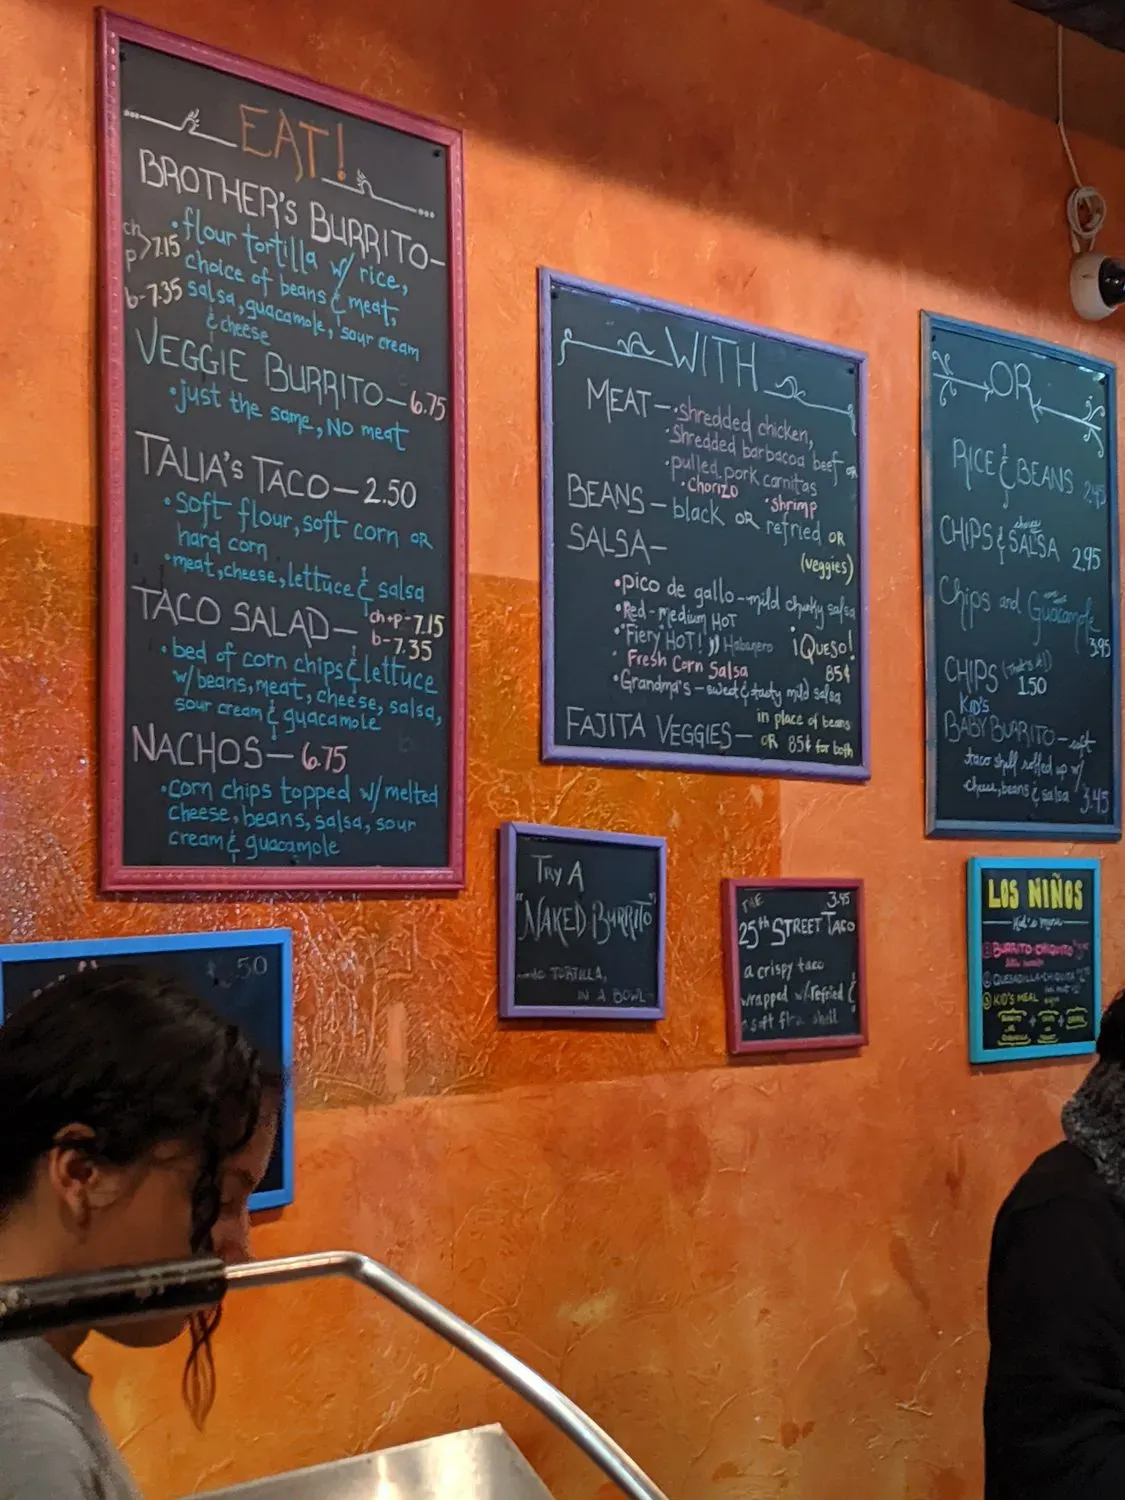 EAT!
BROTHER'S BURRITO-
ch
p >7.15
b-7.35
•flour tortilla w/ rice,
choice of beans & meat,
salsa, guacamole, sour cream
& cheese
VEGGIE BURRITO-6.75
•just the same, NO meat
TALIA'S TACO-2.50
•soft flour, soft corn OR
hard corn
•meat, cheese, lettuce & salsa
TACO SALAD- ch+p-7.15
b-7.35
•bed of corn chips & lettuce
w/beans, meat, cheese, salsa,
sour cream & guacamole
NACHOS-6.75
•corn chips topped w/melted
cheese, beans, salsa, sour
cream & guacamole
WITH
MEAT-•shredded chicken,
•shredded barbacoa beef OR
•pulled pork carnitas
•chorizo •shrimp
BEANS-black OR refried OR
(veggies)
SALSA-
•pico de gallo--mild chunky salsa
•Red-medium HOT
•"Fiery" HOT! Habanero
¡QUESO!
85¢
Fresh Corn Salsa
•Grandma's-sweet & tasty mild salsa
FAJITA VEGGIES- in place of beans
OR 85¢ for both
OR
RICE & BEANS 2.45
CHIPS & SALSA 2.95
Chips and Guacamole
3.95
CHIPS (That's it!)
1.50
KID'S
BABY BURRITO-soft
taco shell rolled up w/
cheese, beans & salsa 3.45
TRY A
"NAKED BURRITO"
NO TORTILLA,
IN A BOWL-
THE 3.45
25th STREET TACO
a crispy taco
wrapped w/refried &
soft shell
LOS NIÑOS
Kid's menu
① BURRITO-CHIQUITO
② QUESADILLA-CHIQUITA
③ KID'S MEAL
.50